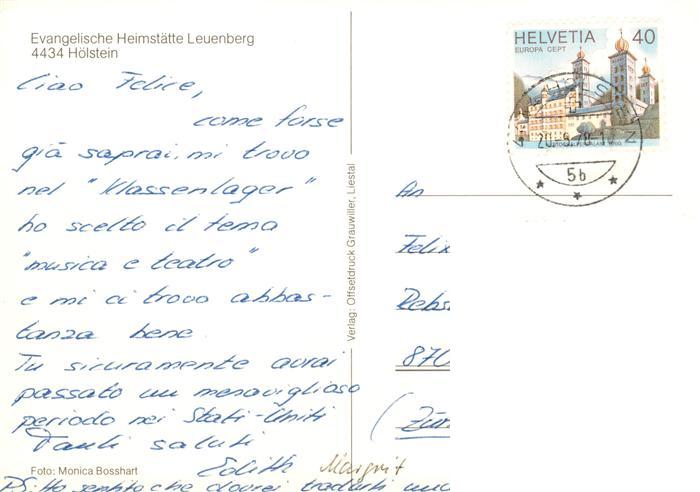 Evangelische Heimstätte Leuenberg
4434 Hölstein
HELVETIA 40
EUROPA CEPT
20.-9.78-1
5b
Ciao Felice,
come forse
già saprai, mi trovo
nel "Klassenlager"
ho scelto il tema
"musica e teatro"
e mi ci trovo abbas-
tanza bene.
Tu sicuramente avrai
passato un meraviglioso
periodo nei Stati-Uniti
Tanti saluti
Edith Margrit
Foto: Monica Bosshart
PS: Ho sentito che dovrei tradurti
Verlag: Offsetdruck Grauwiller, Liestal
An
Felix
870
(Zür